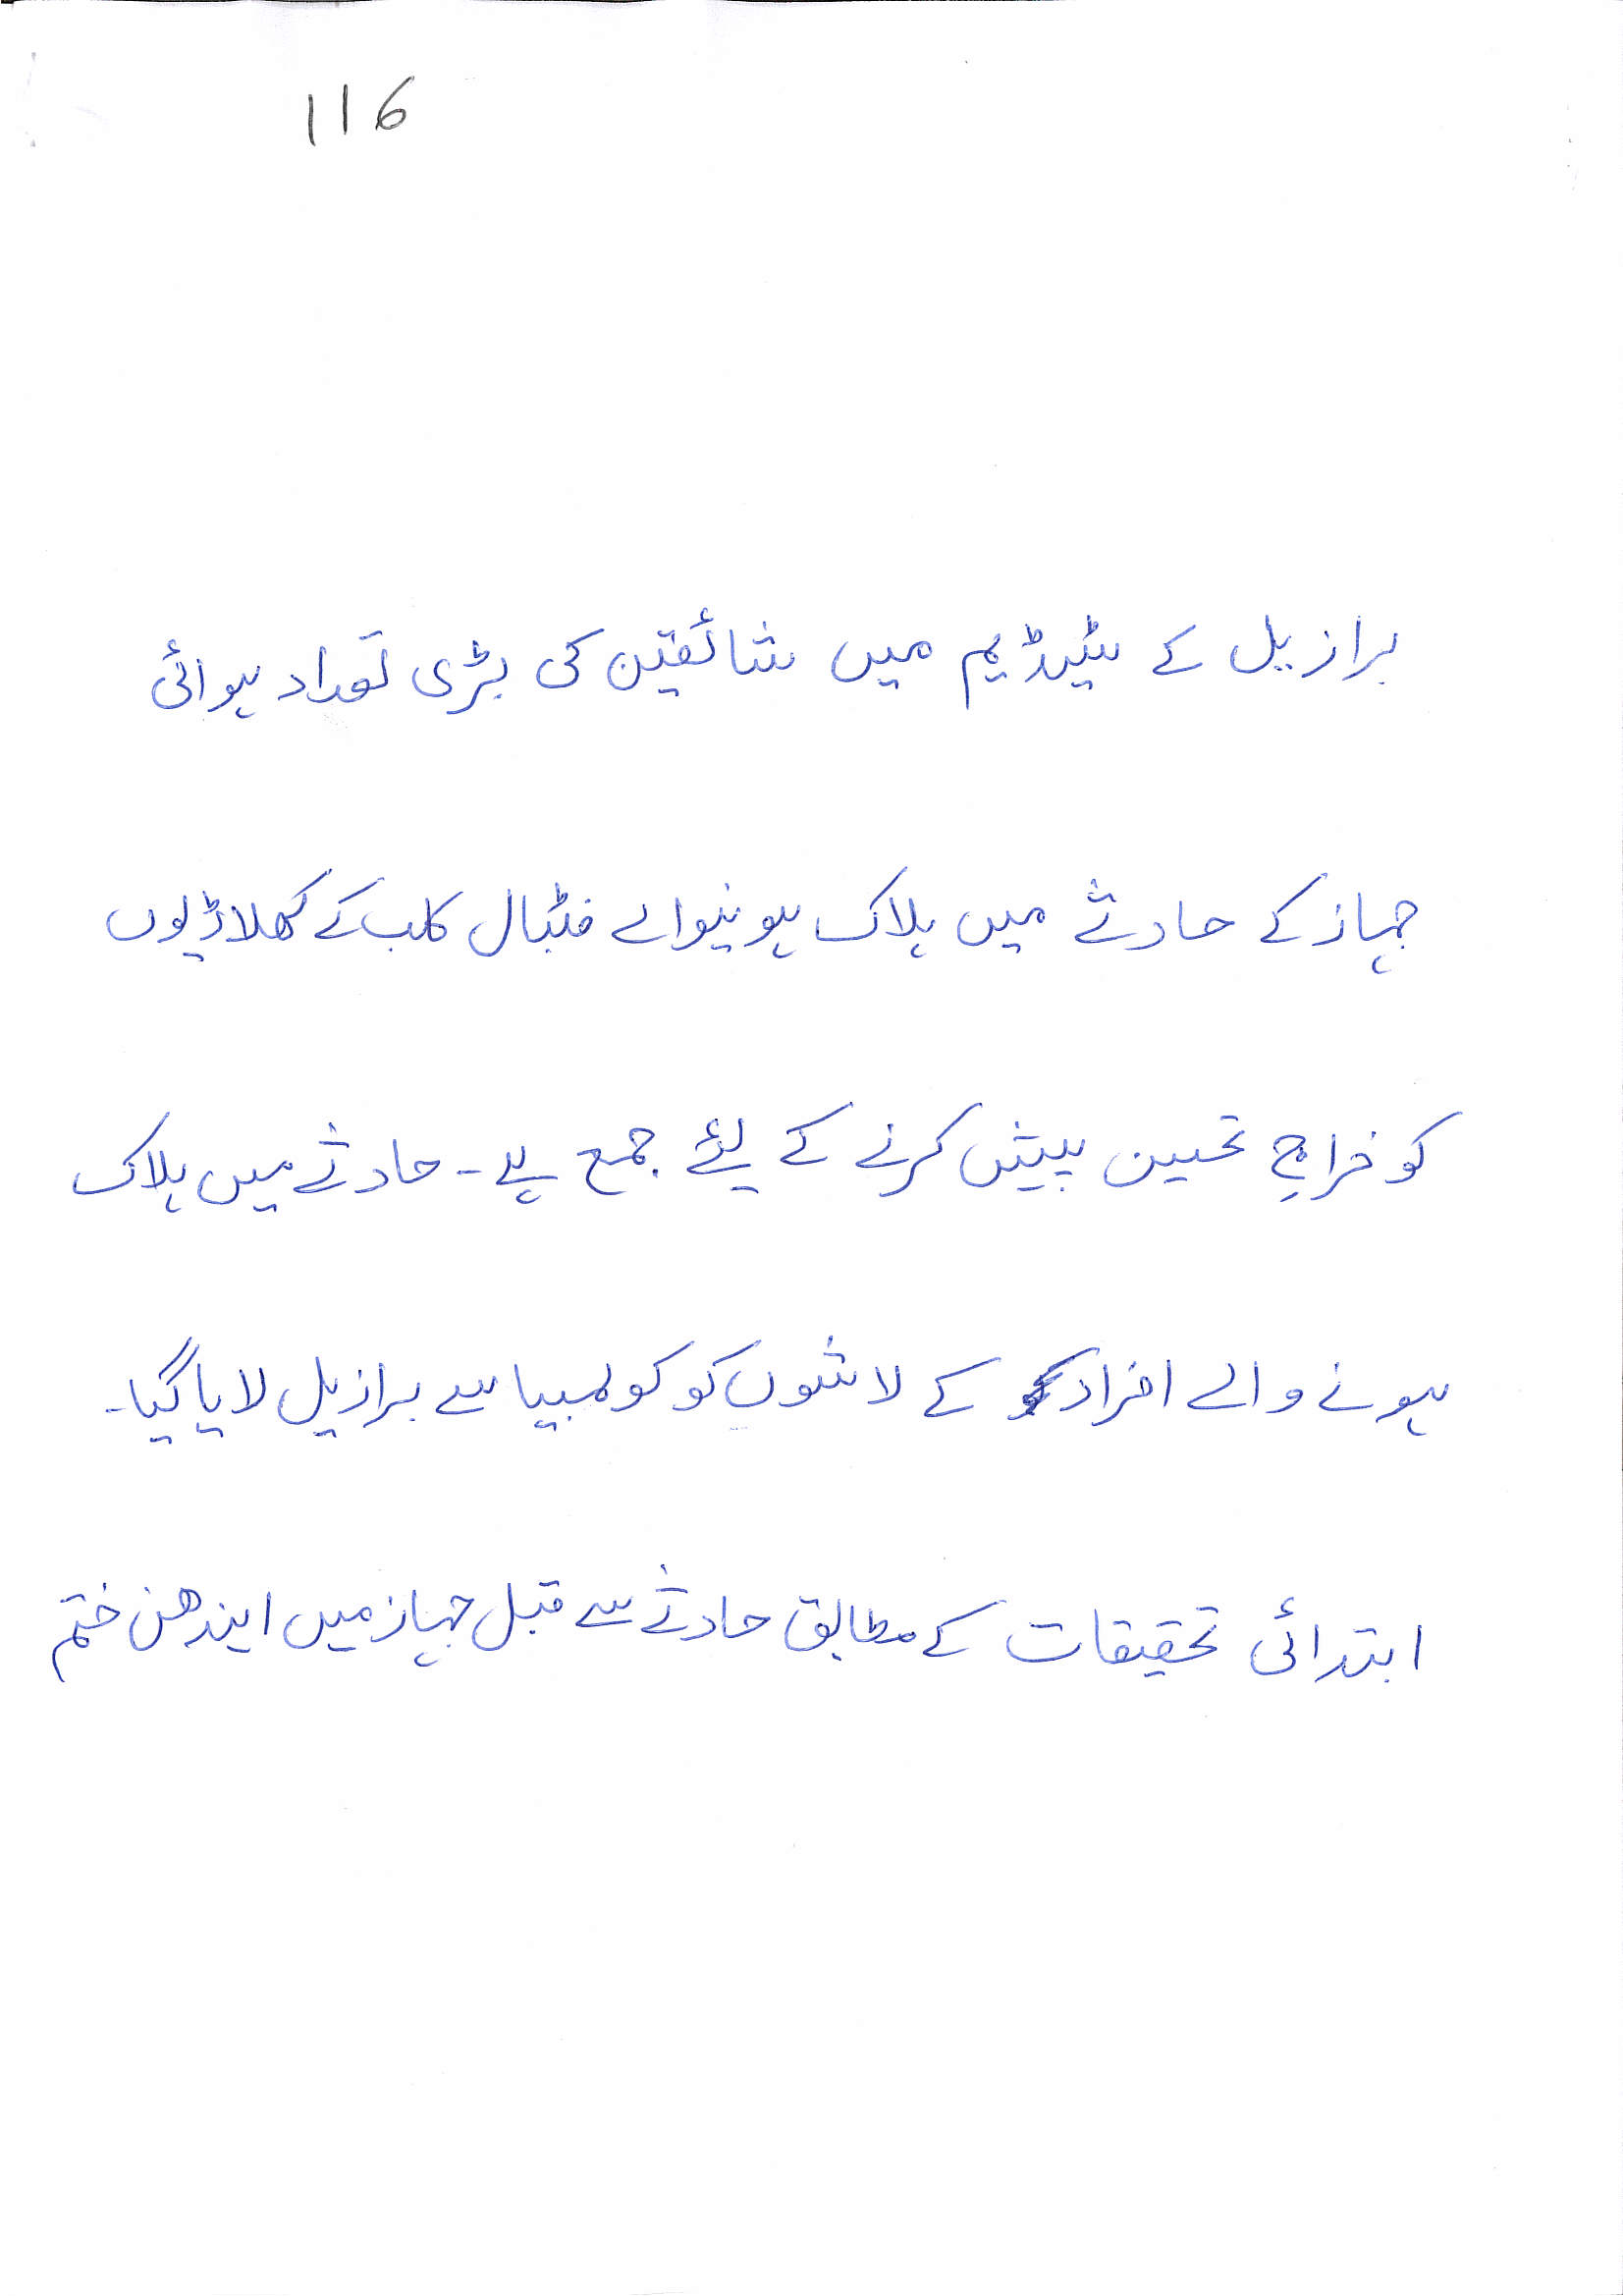 116
برازیل کے سٹیڈیم میں شائقین کی بڑی تعداد ہوائی
جہاز کے حادثے میں ہلاک ہونیوالے فٹبال کلب کے کھلاڑیوں
کو خراجِ تحسین پیش کرنے کے لیٔے جمع ہے۔ حادثے میں ہلاک
ہونے والے افراد کے لاشوں کو کولمبیا سے برازیل لایا گیا۔
ابتدائی تحقیقات کے مطابق حادثے سے قبل جہاز میں ایندھن ختم